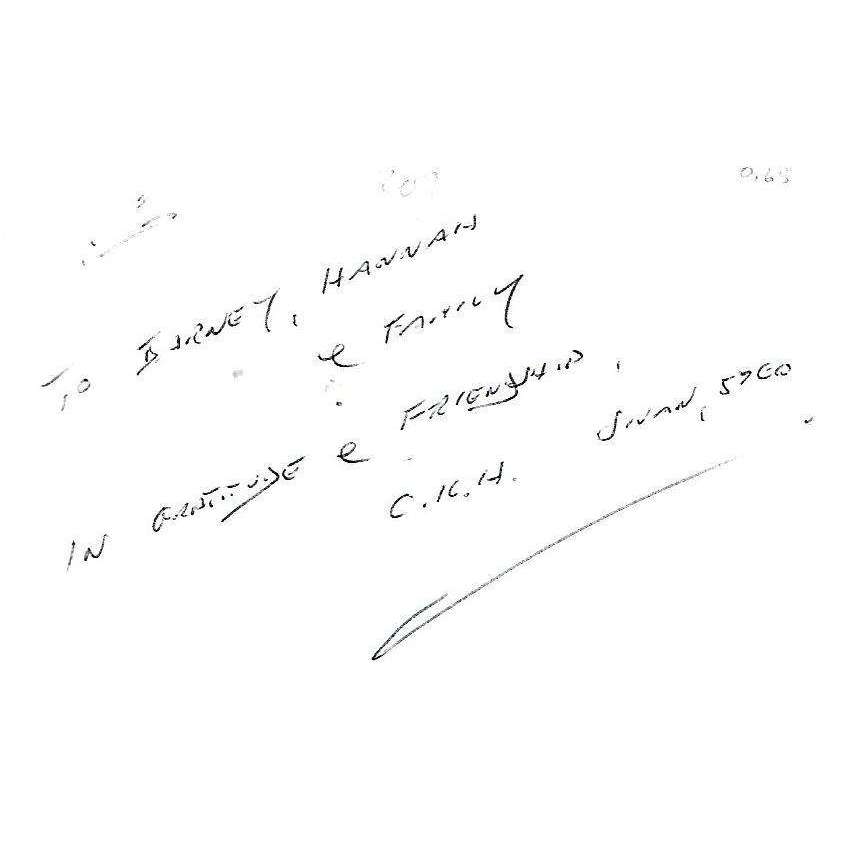 0.65
TO BARNEY, HANNAH
e FAMILY
IN GRATITUDE e FRIENDSHIP,
C.K.H. SIVAN, 5760